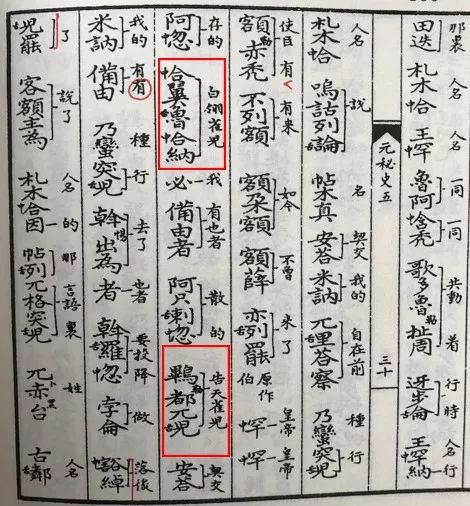 那裏 人名 一同 一同 共動 着 行時 人名 行
田迭 札木恰 王罕 魯阿 歌多魯勒 扯周 王罕納
元秘史五 三十
人名 說 名 契交 我的 自在前 種 行
札木恰 嗚詁列論 帖木真 安荅 米訥 兀里荅察 乃蠻突兒
使臣 有 有來 如今 不曾 來了 原作伯 皇帝 皇帝
額勒赤禿 不列額 額朵額 額薛 亦列罷 罕 罕
存的 白翎雀兒 我 有也者 散的 告天雀兒 契交
阿忽 恰翼嚕恰納 必 備由者 阿只喇忽 都兀兒 安荅
我的 有有 種 行 去了 也者 要投降 做 落後
米訥 備由 乃蠻突兒 斡惕出為者 斡羅忽 孛侖 豁綽
了 說了 人名 的 那 言語裏 姓 人名
兒罷 客額主為 札木恰因 帖列 兀格突兒 兀卜黑赤台 古鄰